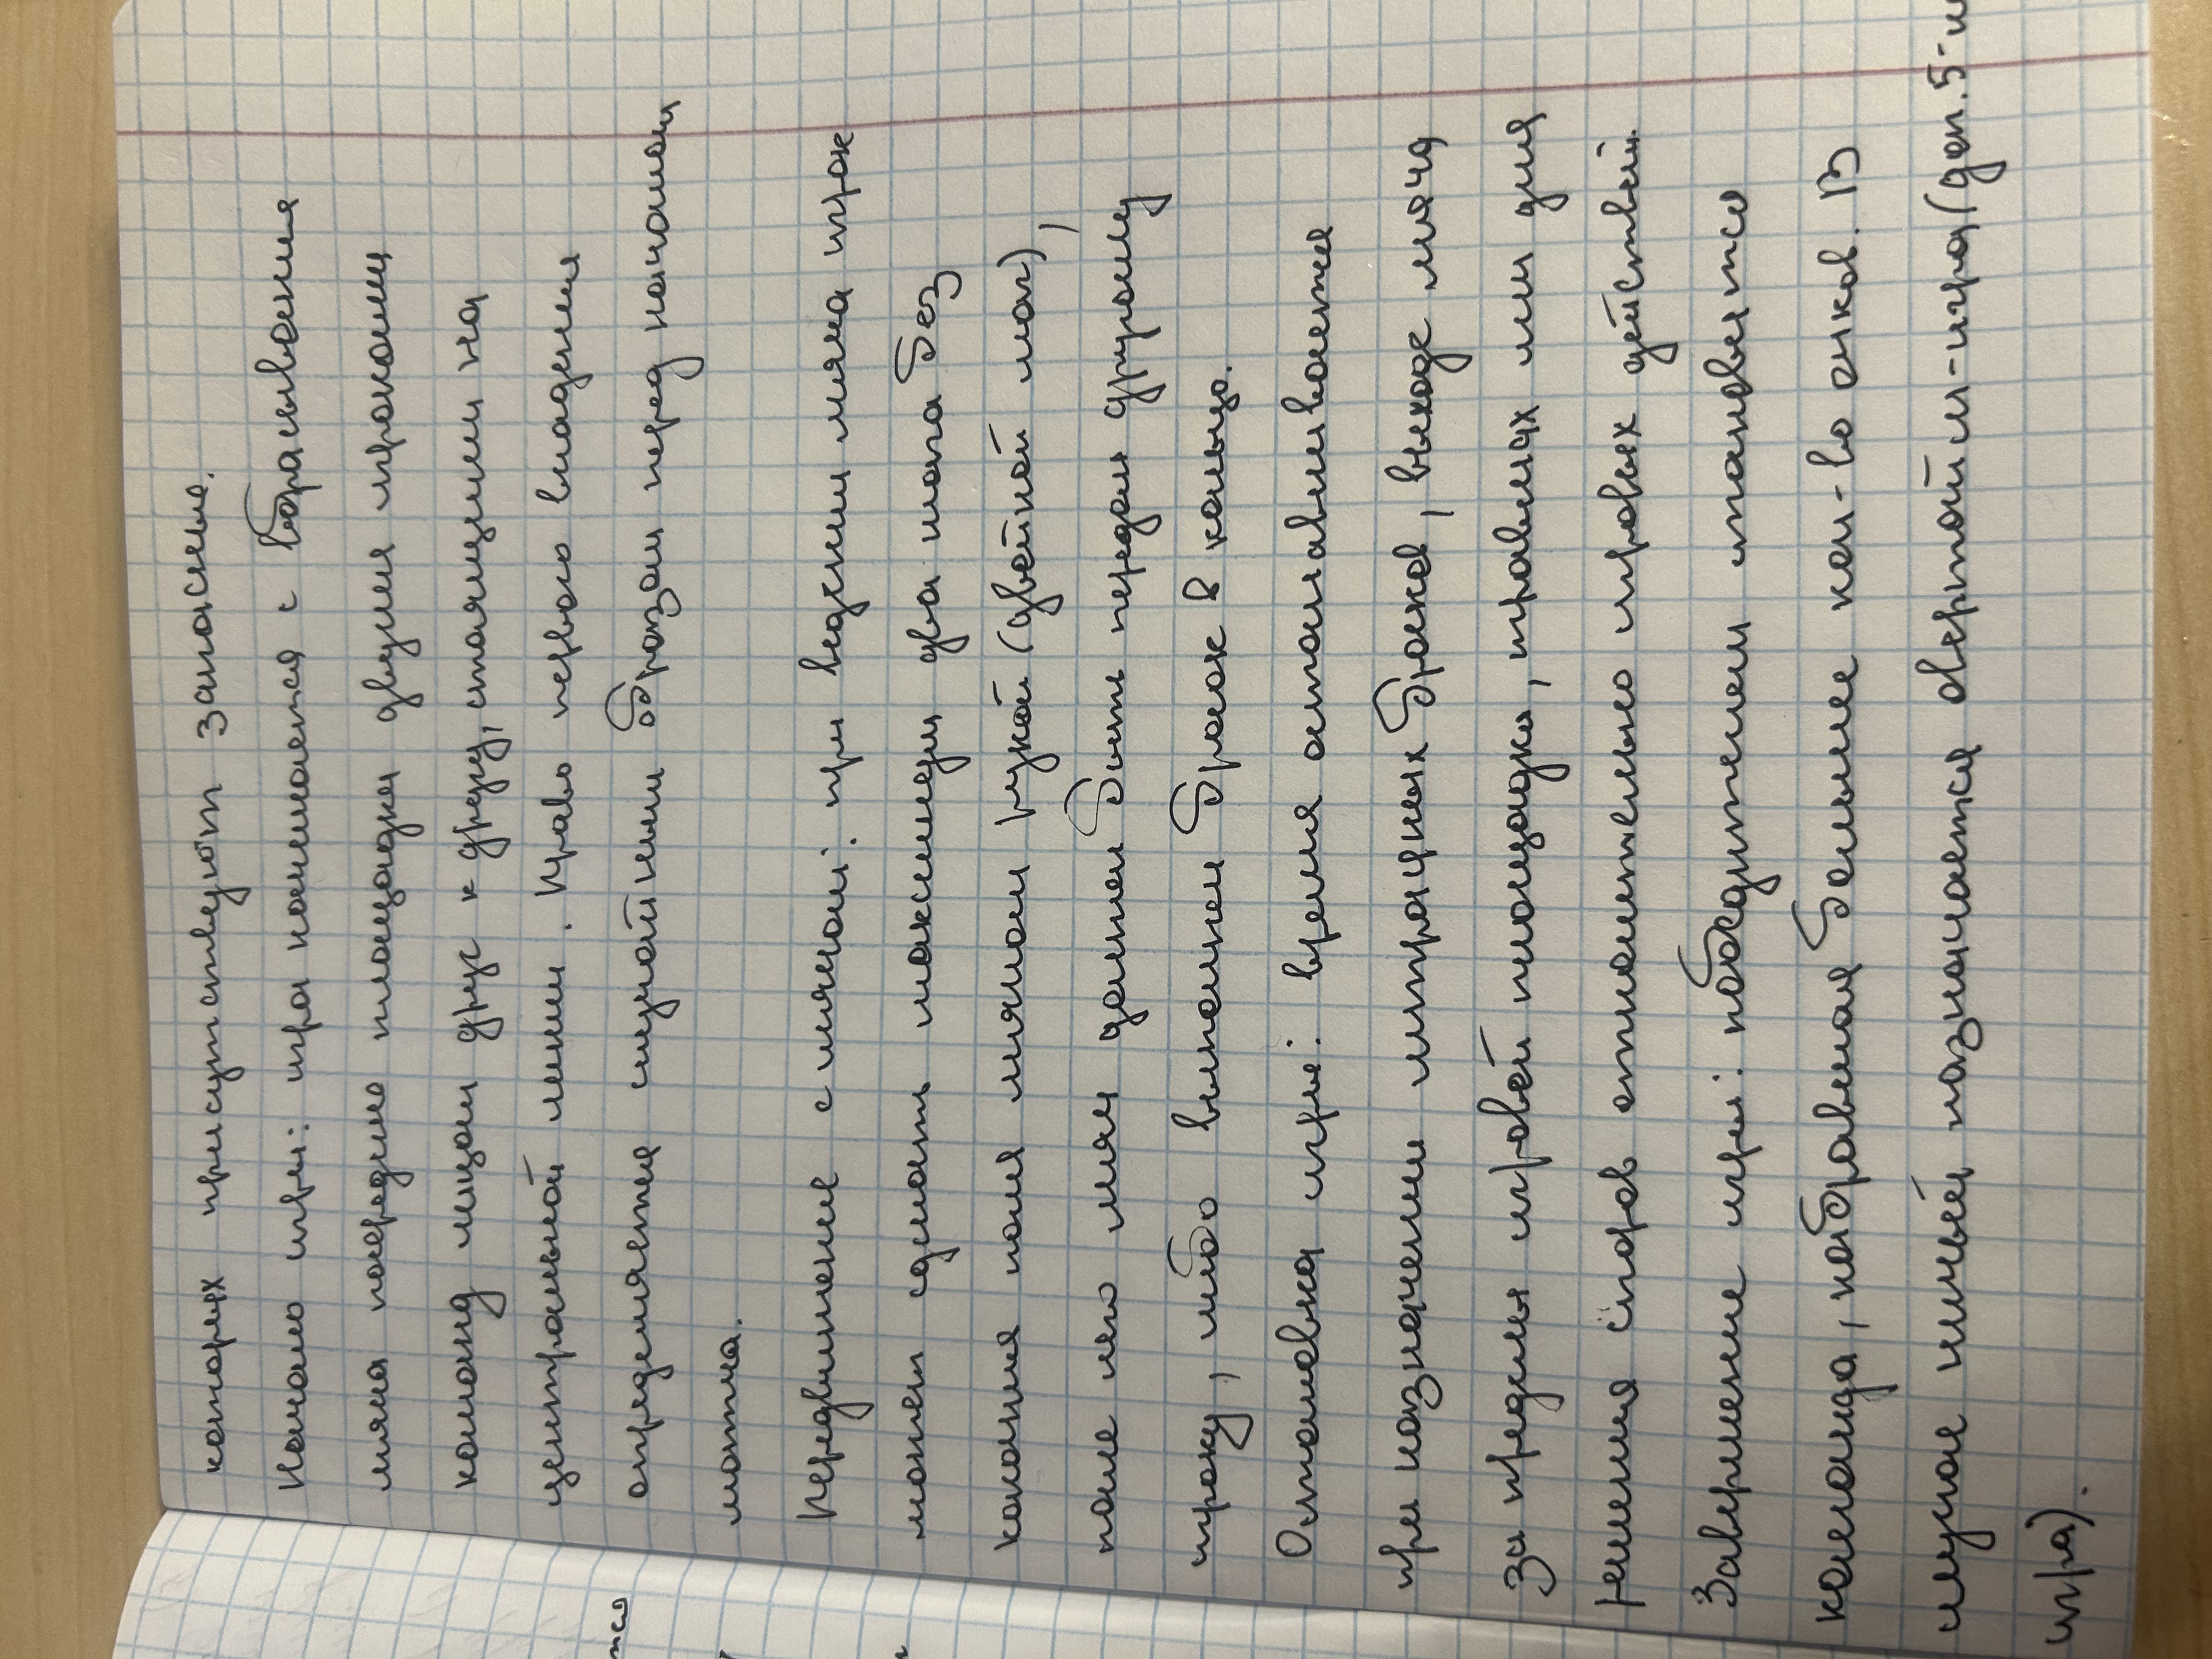 которых присутствуют запасные.
Начало игры: игра начинается с вбрасывания
мяча посередине площадки двумя игроками
команд лицом друг к другу, стоящими на
центральной линии. Право первого владения
определяется случайным образом перед началом
матча.
Передвижение с мячом: при ведении мяча игрок
может сделать максимум два шага без
касания пола мячом рукой (двойной шаг),
после чего мяч должен быть передан другому
игроку, либо выполнен бросок в кольцо.
Остановка игры: время останавливается
при назначении штрафных бросков, выходе мяча
за пределы игровой площадки, травмах или для
решения споров относительно игровых действий.
Завершение игры: победителем становится
команда, набравшая больше кол-во очков. В
случае ничьей назначается овертайм-игра (доп. 5-и
игра).